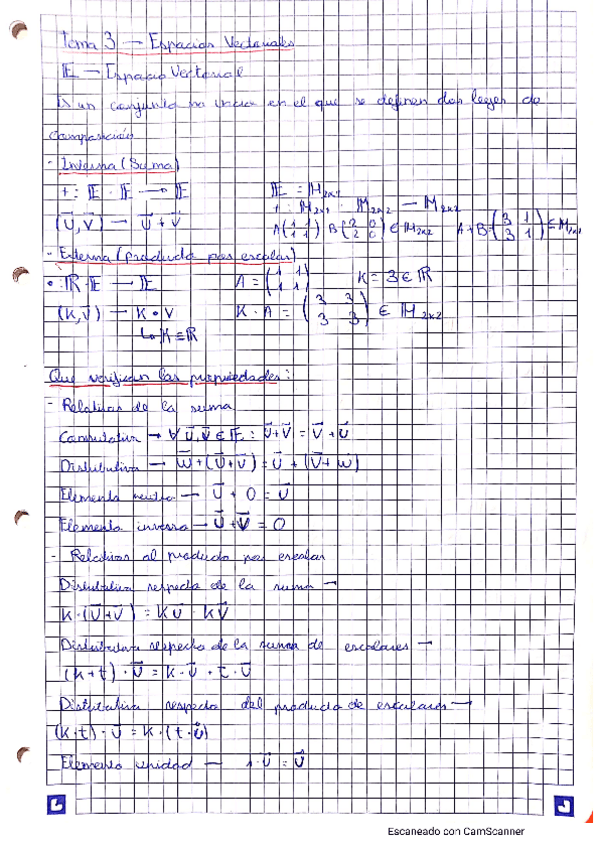 Tema 3 — Espacios Vectoriales
E — Espacio Vectorial
Es un conjunto no vacio en el que se definen dos leyes de
composición
- Interna (Suma)
+ : E · E → E
E = M2x2
+ : M2x2 · M2x2 — M2x2
(u⃗, v⃗) — u⃗ + v⃗
A(1 1 / 1 1) B(2 0 / 2 0) ∈ M2x2 A+B=(3 1 / 3 1) ∈ M2x2
- Externa (producto por escalar)
• : R · E — E
A = (1 1 / 1 1) K = 3 ∈ R
(K, v⃗) — K • v
K · A = (3 3 / 3 3) ∈ M2x2
↳ K ∈ R
Que verifican las propiedades:
- Relativas de la suma
Conmutativa → ∀ u⃗, v⃗ ∈ E : u⃗+v⃗ = v⃗ + u⃗
Distributiva — w⃗+(u⃗+v⃗) = u⃗ + (v⃗+w⃗)
Elemento neutro — u⃗ + 0 = u⃗
Elemento inverso — u⃗+v⃗ = 0
- Relativas al producto por escalar
Distributiva respecto de la suma →
K·(u⃗+v⃗) = Ku⃗ Kv⃗
Distributiva respecto de la suma de escalares →
(k+t) · u⃗ = k · u⃗ + t · u⃗
Distributiva respecto del producto de escalares →
(k·t) · u⃗ = k · (t · u⃗)
Elemento unidad — 1·u⃗ = u⃗
Escaneado con CamScanner